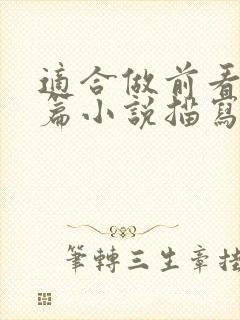 適合做前看
篇小說描寫
筆轉三生章挂